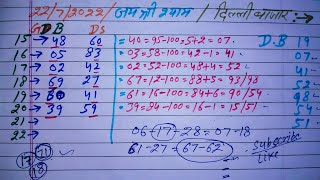 22/7/2022/ जय श्री श्याम / दिल्ली बाजार :→
DB DS D.B 19
15→ 48 60 =40=95-100=5+2=07.
16→ 05 83 =03=58-100=42-1=41
17→ 02 42 =02=52-100=48+4=52
18→ 69 27 =67=12-100=88+5=93/98
19→ 80 41 =61=16-100=84+6=90/54
20→ 39 59 =39=84-100=16-1=15/51
21→
22→
06-17-28=07-18
61-27-67-62
Subscribe
Like